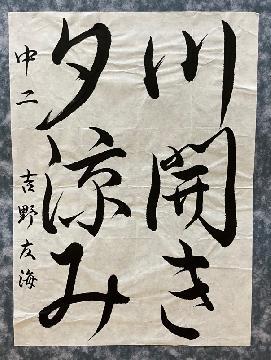 川開き
夕涼み
中二 吉野友海